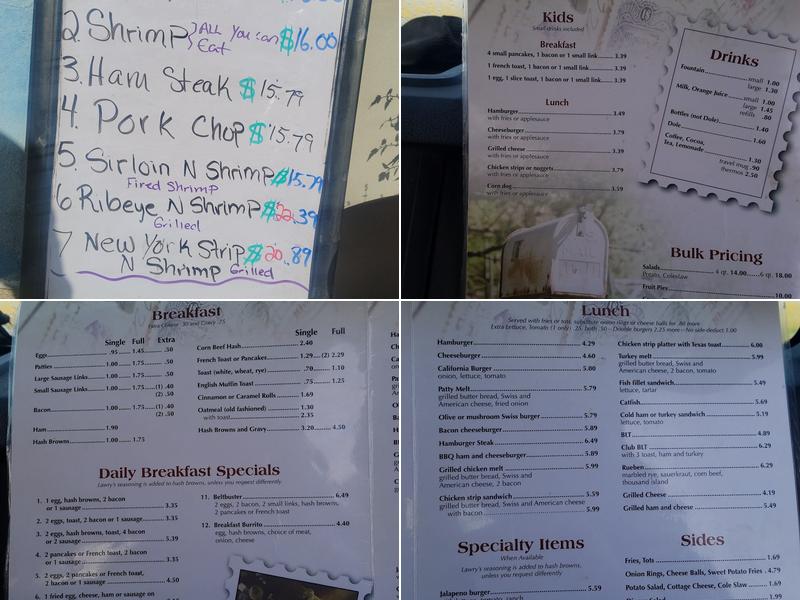 2. Shrimp } All You can Eat $16.00
3. Ham Steak $15.79
4. Pork Chop $15.79
5. Sirloin N Shrimp $15.79
Fired Shrimp
6 Ribeye N Shrimp $22.39
Grilled
7 New York Strip $20.89
N Shrimp Grilled
Kids
Small drinks included
Breakfast
4 small pancakes, 1 bacon or 1 small link 3.39
1 french toast, 1 bacon or 1 small link 3.39
1 egg, 1 slice toast, 1 bacon or 1 small link 3.39
Lunch
Hamburger 3.49
with fries or applesauce
Cheeseburger 3.79
with fries or applesauce
Grilled cheese 3.39
with fries or applesauce
Chicken strips or nuggets 3.79
with fries or applesauce
Corn dog 3.59
with fries or applesauce
Drinks
Fountain small 1.00
large 1.30
Milk, Orange Juice small 1.00
large 1.45
refills .80
Bottles (not Dole) 1.40
Dole 1.60
Coffee, Cocoa,
Tea, Lemonade 1.30
travel mug .90
thermos 2.50
Bulk Pricing
Salads 4 qt. 14.00 6 qt. 18.00
Potato, Coleslaw
Fruit Pies 10.00
Breakfast
Extra Cheese .50 and Gravy .75
Single Full Extra
Eggs .95 1.45 .50
Patties 1.00 1.75 .50
Large Sausage Links 1.00 1.75 .50
Small Sausage Links 1.00 1.75 (1) .40
(2) .50
Bacon 1.00 1.75 (1) .40
(2) .50
Ham 1.90
Hash Browns 1.00 1.75
Single Full
Corn Beef Hash 2.40
French Toast or Pancakes 1.29 (2) 2.29
Toast (white, wheat, rye) .70 1.10
English Muffin Toast .75 1.25
Cinnamon or Caramel Rolls 1.69
Oatmeal (old fashioned) 1.30
with toast 2.35
Hash Browns and Gravy 3.20 4.50
Daily Breakfast Specials
Lawry's seasoning is added to hash browns, unless you request differently.
1. 1 egg, hash browns, 2 bacon
or 1 sausage 3.35
2. 2 eggs, toast, 2 bacon or 1 sausage 3.35
3. 2 eggs, hash browns, toast, 4 bacon
or 2 sausage 5.39
4. 2 pancakes or French toast, 2 bacon
or 1 sausage 3.35
5. 2 eggs, 2 pancakes or French toast,
2 bacon or 1 sausage 4.50
6. 1 fried egg, cheese, ham or sausage on
11. Beltbuster 6.49
2 eggs, 2 bacon, 2 small links, hash browns,
2 pancakes or French toast
12. Breakfast Burrito 4.40
egg, hash browns, choice of meat,
onion, cheese
Lunch
Served with fries or tots, substitute onion rings or cheese balls for .80 more
Extra lettuce, Tomato (1 only) .25, both .50 - Double burgers 2.25 more - No side-deduct 1.00
Hamburger 4.29
Cheeseburger 4.60
California Burger 5.00
onion, lettuce, tomato
Patty Melt 5.79
grilled butter bread, Swiss and
American cheese, fried onion
Olive or mushroom Swiss burger 5.79
Bacon cheeseburger 5.89
Hamburger Steak 6.49
BBQ ham and cheeseburger 5.89
Grilled chicken melt 5.99
grilled butter bread, Swiss and
American cheese, 2 bacon
Chicken strip sandwich 5.59
grilled butter bread, Swiss and American cheese
with bacon 5.99
Specialty Items
When Available
Lawry's seasoning is added to hash browns,
unless you request differently
Jalapeno burger 5.59
Chicken strip platter with Texas toast 6.00
Turkey melt 5.99
grilled butter bread, Swiss and
American cheese, 2 bacon, tomato
Fish fillet sandwich 5.49
lettuce, tartar
Catfish 5.69
Cold ham or turkey sandwich 5.19
lettuce, tomato
BLT 4.89
Club BLT 6.29
with 3 toast, ham and turkey
Rueben 6.29
marbled rye, sauerkraut, corn beef,
thousand island
Grilled Cheese 4.19
Grilled ham and cheese 5.49
Sides
Fries, Tots 1.69
Onion Rings, Cheese Balls, Sweet Potato Fries 4.79
Potato Salad, Cottage Cheese, Cole Slaw 1.69
1.99